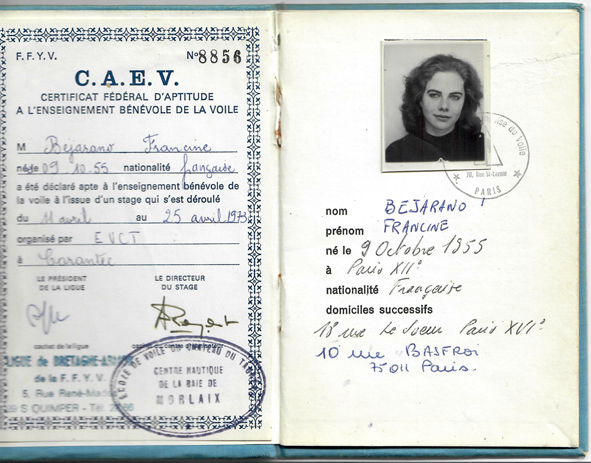 F.F.Y.V. N° 8856
C.A.E.V.
CERTIFICAT FÉDÉRAL D'APTITUDE
A L'ENSEIGNEMENT BÉNÉVOLE DE LA VOILE
M Bejarano Francine
né le 09.10.55 nationalité française
a été déclaré apte à l'enseignement bénévole de
la voile à l'issue d'un stage qui s'est déroulé
du 11 avril au 25 avril 1973
organisé par EVCT
à Carantec
LE PRÉSIDENT DE LA LIGUE
LE DIRECTEUR DU STAGE
cachet de la ligue
LIGUE de BRETAGNE
de la F.F.Y.V.
5, Rue René
S QUIMPER - Tél.
ECOLE DE VOILE DU CHATEAU DU
CENTRE NAUTIQUE
DE LA BAIE DE
MORLAIX
de Voile
PARIS
nom BEJARANO
prénom FRANCINE
né le 9 Octobre 1955
à Paris XIIe
nationalité Française
domiciles successifs
18 rue Le Sueur Paris XVIe
10 rue BASFROI
75011 Paris.